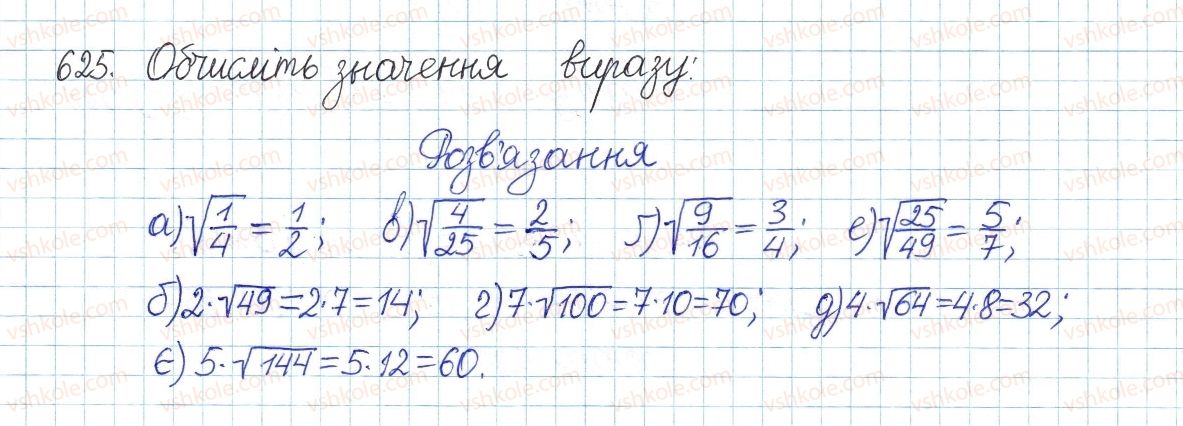 625. Обчисліть значення виразу:
Розв'язання
а) √(1/4) = 1/2; в) √(4/25) = 2/5; ґ) √(9/16) = 3/4; е) √(25/49) = 5/7;
б) 2·√49 = 2·7 = 14; г) 7·√100 = 7·10 = 70; д) 4·√64 = 4·8 = 32;
є) 5·√144 = 5·12 = 60.
vshkole.com